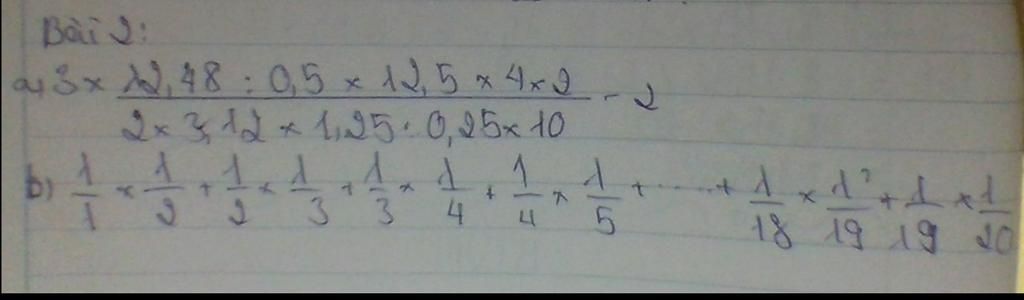 Bài 2:
a, 3 × 12,48 : 0,5 × 12,5 × 4 × 2 - 2
2 × 3,12 × 1,25 : 0,25 × 10
b) 1/1 × 1/2 + 1/2 × 1/3 + 1/3 × 1/4 + 1/4 × 1/5 + ...... + 1/18 × 1/19 + 1/19 × 1/20